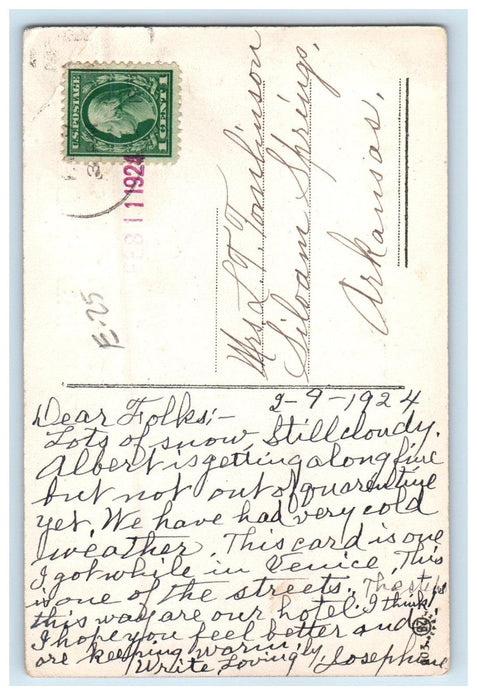 U.S. POSTAGE
1 CENT 1
FEB 11 1924
E-25
Mrs. L. T. Tomlinson
Siloam Springs,
Arkansas.
Dear Folks:- 2-9-1924
Lots of snow. Still cloudy.
Albert is getting along fine
but not out of quarentine
yet. We have had very cold
weather. This card is one
I got while in Venice. This
is one of the streets. The steps
this way are our hotel. I think
I hope you feel better and
are keeping warm.
Write Lovingly, Josephine